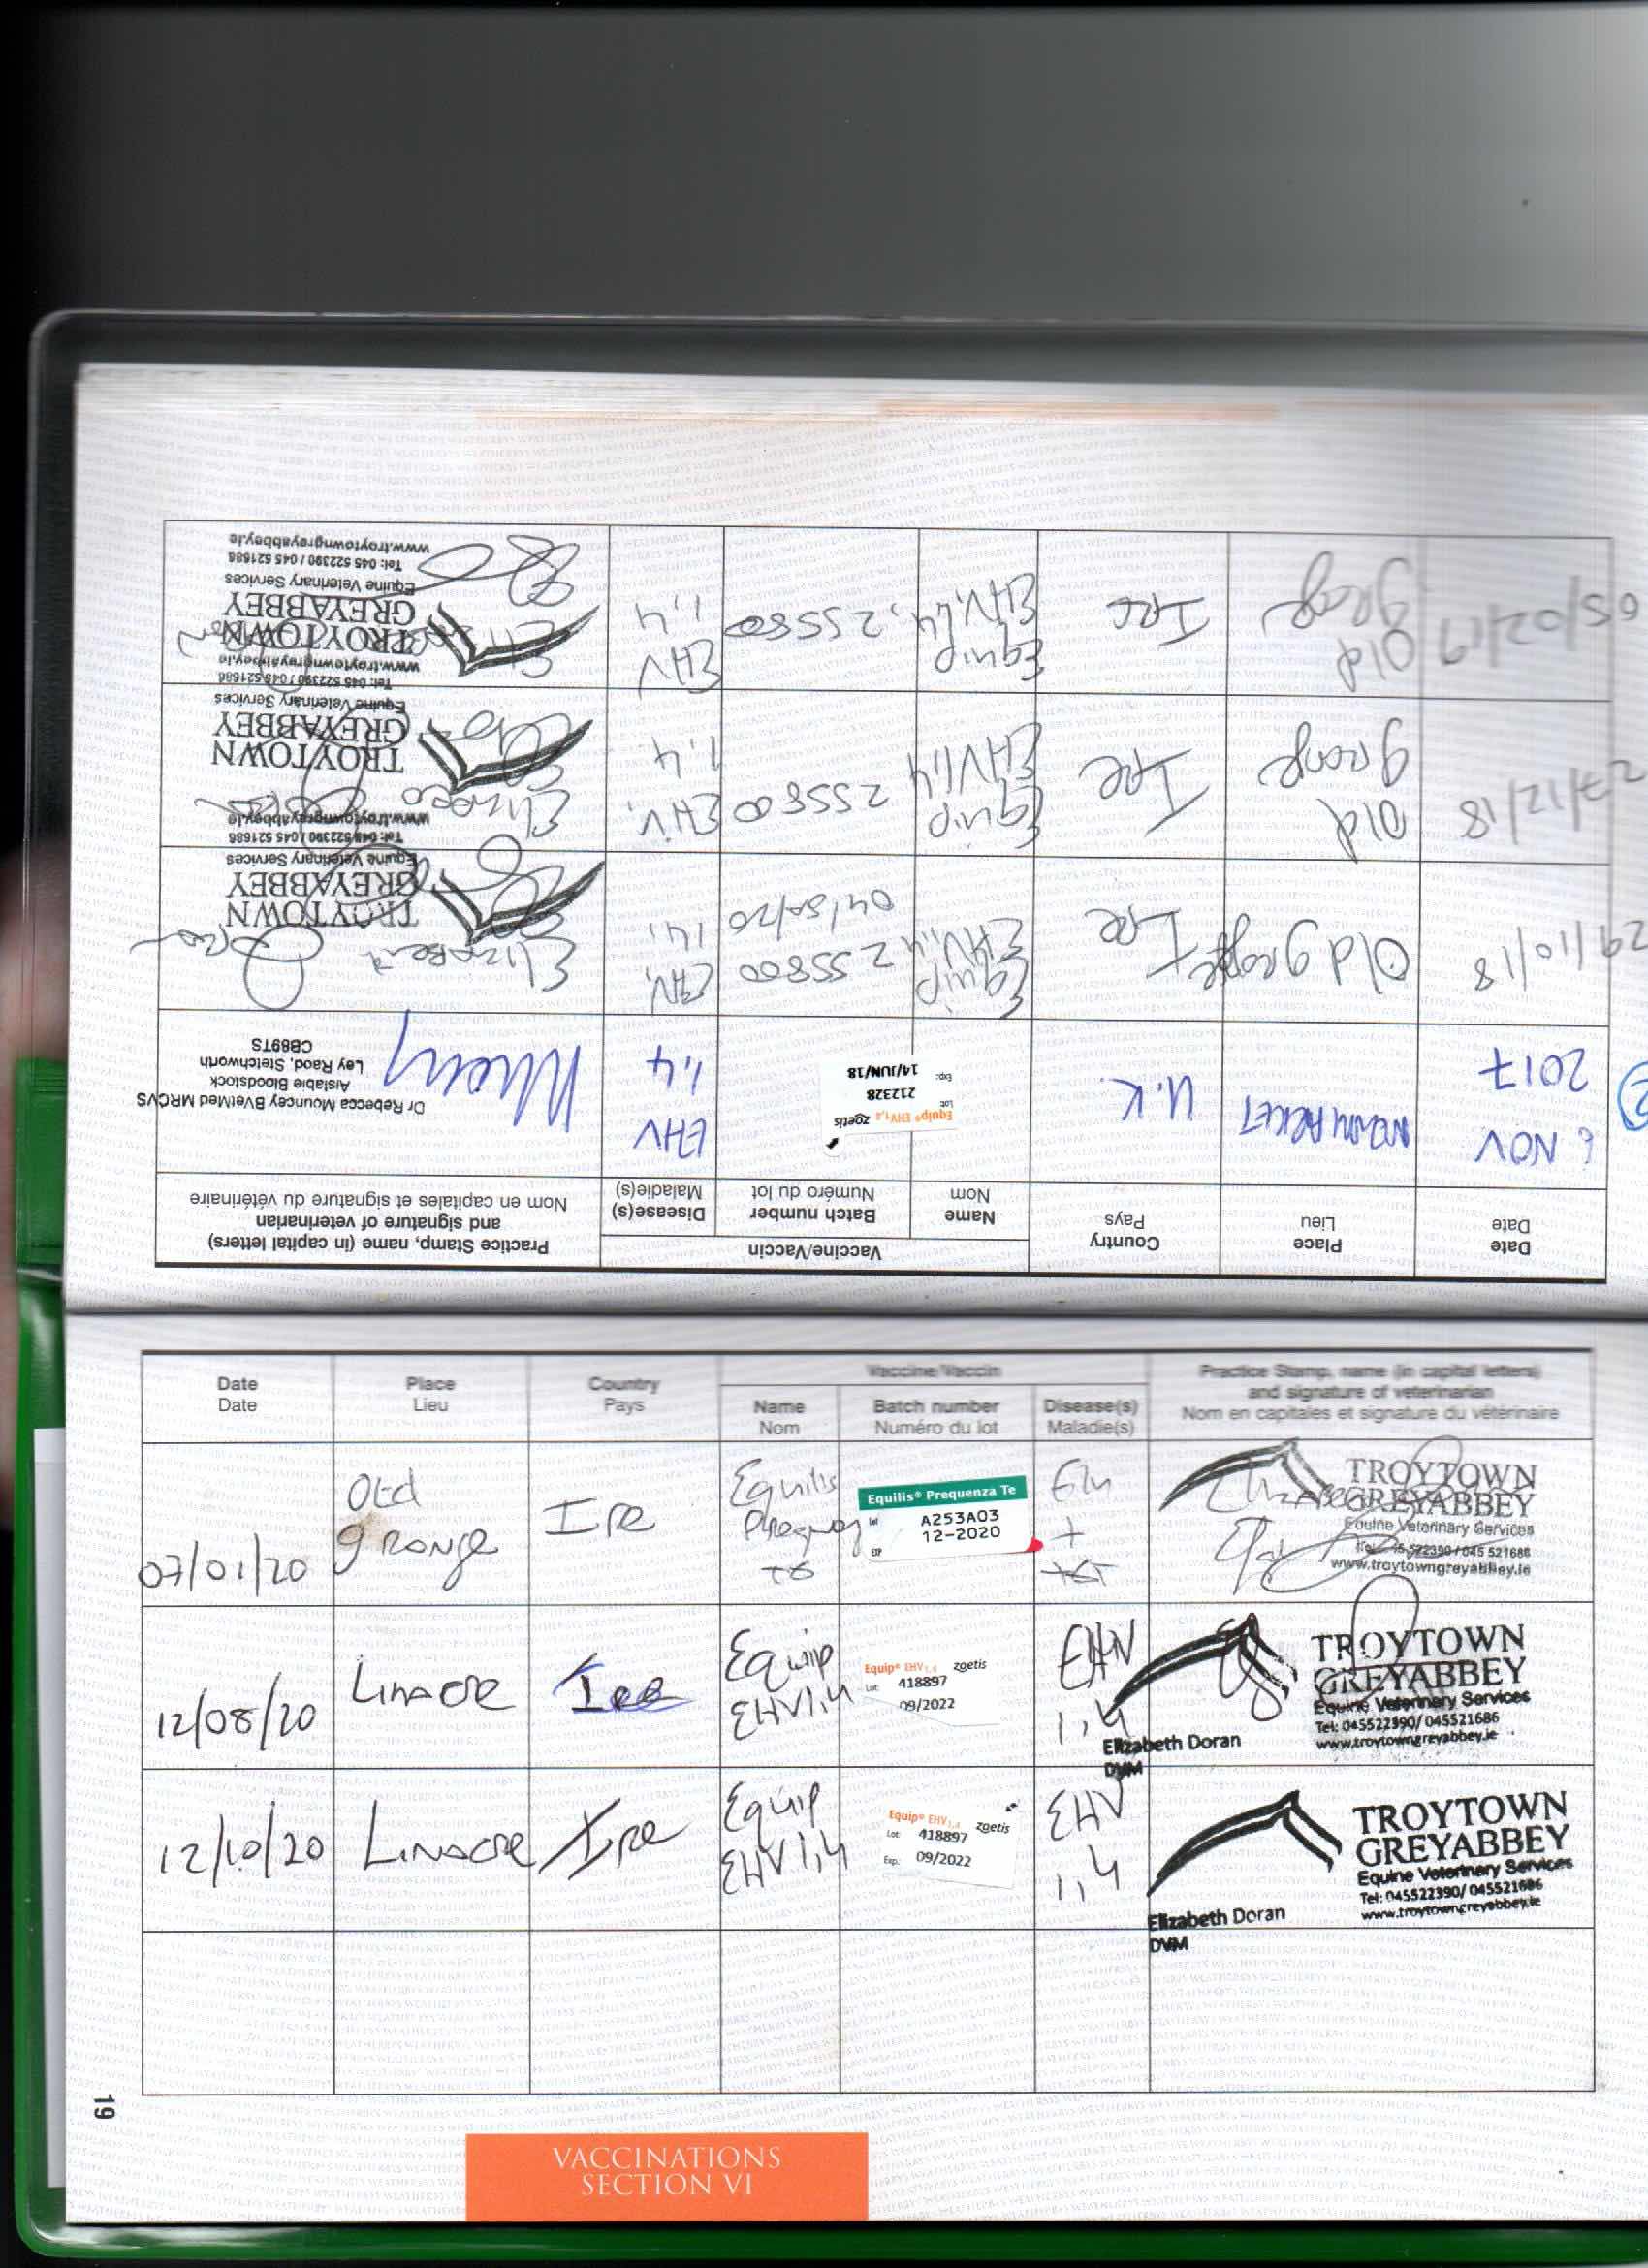 Date
Date
Place
Lieu
Country
Pays
Vaccine/Vaccin
Name
Nom
Batch number
Numéro du lot
Disease(s)
Maladie(s)
Practice Stamp, name (in capital letters)
and signature of veterinarian
Nom en capitales et signature du vétérinaire
6 NOV
2017
NEWMARKET
U.K.
Equip® EHV1,4 zoetis
Lot: 212328
Exp: 14/JUN/18
EHV
1,4
Dr Rebecca Mouncey BVetMed MRCVS
Aislabie Bloodstock
Ley Raod, Stetchworth
CB89TS
29/10/18
Old grange
Ire
Equip
EHV1,4
255800
EHV,
1,4
Elizabeth
TROYTOWN
GREYABBEY
Equine Veterinary Services
Tel: 045 522390 / 045 521686
www.troytowngreyabbey.ie
27/12/18
Old
grange
Ire
Equip
EHV1,4
255800
EHV,
1,4
TROYTOWN
GREYABBEY
Equine Veterinary Services
Tel: 045 522390 / 045 521686
www.troytowngreyabbey.ie
05/02/19
Old
grange
Ire
Equip
EHV1,4
255800
EHV
1,4
TROYTOWN
GREYABBEY
Equine Veterinary Services
Tel: 045 522390 / 045 521686
www.troytowngreyabbey.ie
Date
Date
Place
Lieu
Country
Pays
Vaccine/Vaccin
Name
Nom
Batch number
Numéro du lot
Disease(s)
Maladie(s)
Practice Stamp, name (in capital letters)
and signature of veterinarian
Nom en capitales et signature du vétérinaire
07/01/20
Old
grange
Ire
Equilis
Te
Equilis® Prequenza Te
Lot A253A03
EXP 12-2020
Flu
+
TROYTOWN
GREYABBEY
Equine Veterinary Services
Tel: 045 522390 / 045 521686
www.troytowngreyabbey.ie
12/08/20
Linacre
Ire
Equip
EHV1,4
Equip® EHV1,4 zoetis
Lot: 418897
09/2022
EHV
1,4
TROYTOWN
GREYABBEY
Equine Veterinary Services
Tel: 045522390/ 045521686
www.troytowngreyabbey.ie
Elizabeth Doran
DVM
12/10/20
Linacre
Ire
Equip
EHV1,4
Equip® EHV1,4 zoetis
Lot: 418897
Exp: 09/2022
EHV
1,4
TROYTOWN
GREYABBEY
Equine Veterinary Services
Tel: 045522390/ 045521686
www.troytowngreyabbey.ie
Elizabeth Doran
DVM
19
VACCINATIONS
SECTION VI